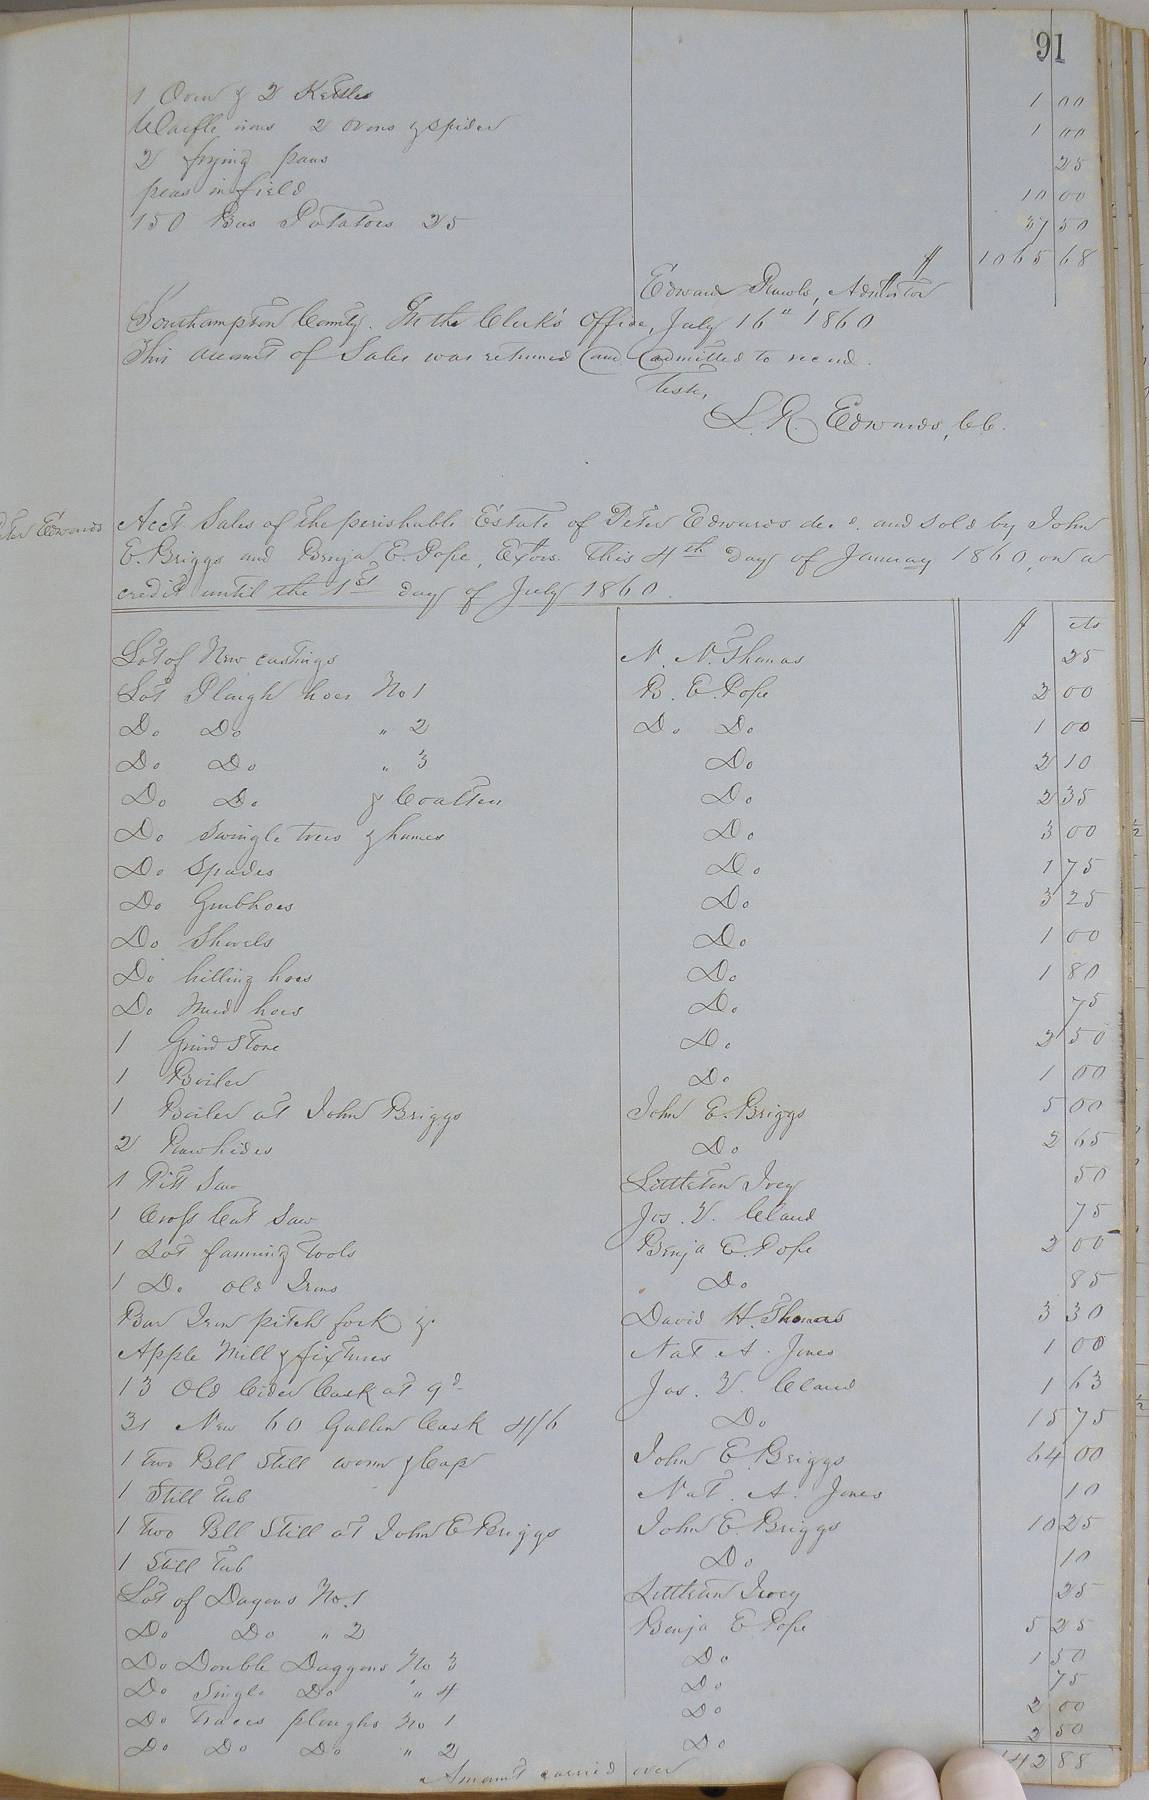 91
1 Oven & 2 Kettles 1 00
Waffle irons 2 ovens & spider 1 00
2 frying pans 25
peas in field 10 00
150 Bus Potatoes 25 37 50
$ 1065 68
Edward Rawls, Admstor
Southampton County. In the Clerk's office, July 16th 1860
This account of Sales was returned and admitted to record.
Teste,
L. R. Edwards, C.C.
Peter Edwards
Acct Sales of the perishable Estate of Peter Edwards dec. and sold by John
E. Briggs and Benja E. Pope, Extors. This 4th day of January 1860, on a
credit until the 1st day of July 1860.
$ cts
Lot of New castings N. N. Thomas 25
Lot Plough hoes No 1 B. E. Pope 2 00
Do Do " 2 Do Do 1 00
Do Do " 3 Do 2 10
Do Do & Coalters Do 2 35
Do Swingle trees & hames Do 3 00
Do Spades Do 1 75
Do Grubhoes Do 3 25
Do Shovels Do 1 00
Do hilling hoes Do 1 80
Do Weed hoes Do 75
1 Grind Stone Do 2 50
1 Boiler Do 1 00
1 Boiler at John Briggs John E. Briggs 5 00
2 Rawhides Do 2 65
1 Pitt Saw Littleton Ivey 50
1 Cross Cut Saw Jos. V. Claud 75
1 Lot farming Tools Benja E. Pope 2 00
1 Do old Irons Do 85
Bar Iron pitch fork & David H. Thomas 3 30
Apple Mill & fixtures Nat A. Jones 1 00
13 Old Cider Cask at 9d Jos. V. Claud 1 63
31 New 60 Gallon Cask 4/6 Do 15 75
1 two Bll Still worm & Cap John E. Briggs 64 00
1 Still Tub Nat. A. Jones 10
1 two Bll Still at John E Briggs John E. Briggs 10 25
1 Still Tub Do 10
Lot of Dagons No. 1 Littleton Ivey 25
Do Do " 2 Benja E Pope 5 25
Do Double Daggons No 3 Do 1 50
Do Single Do " 4 Do 75
Do Traces ploughs No 1 Do 2 00
Do Do Do " 2 Do 2 50
Amount carried over 142 88